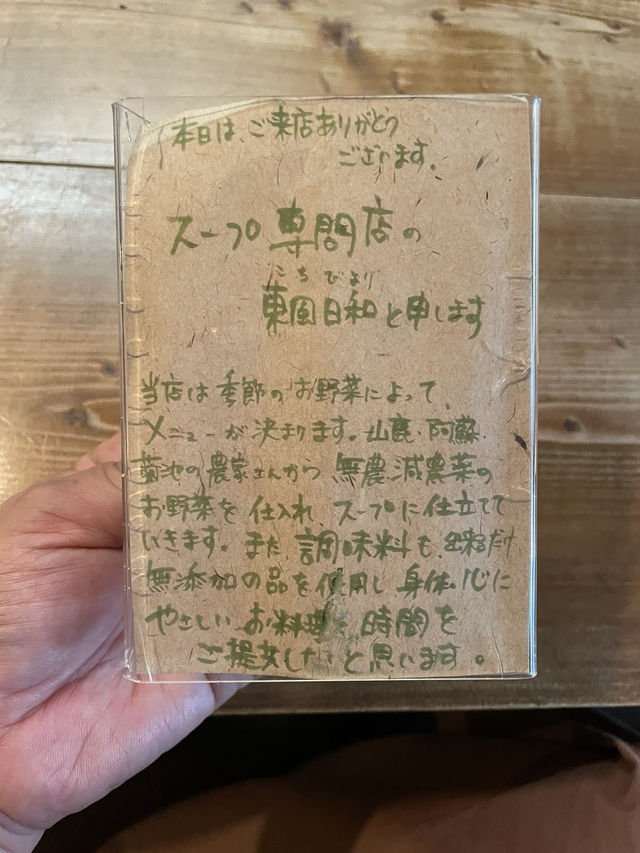 本日は、ご来店ありがとう
ございます。
スープ専門店の
こちびより
東風日和と申します
当店は季節のお野菜によって、
メニューが決まります。山鹿、阿蘇、
菊池の農家さんから無農減農薬の
お野菜を仕入れ、スープに仕立てて
いきます。また調味料も出来るだけ、
無添加の品を使用し身体・心に
やさしいお料理と時間を
ご提案したいと思います。